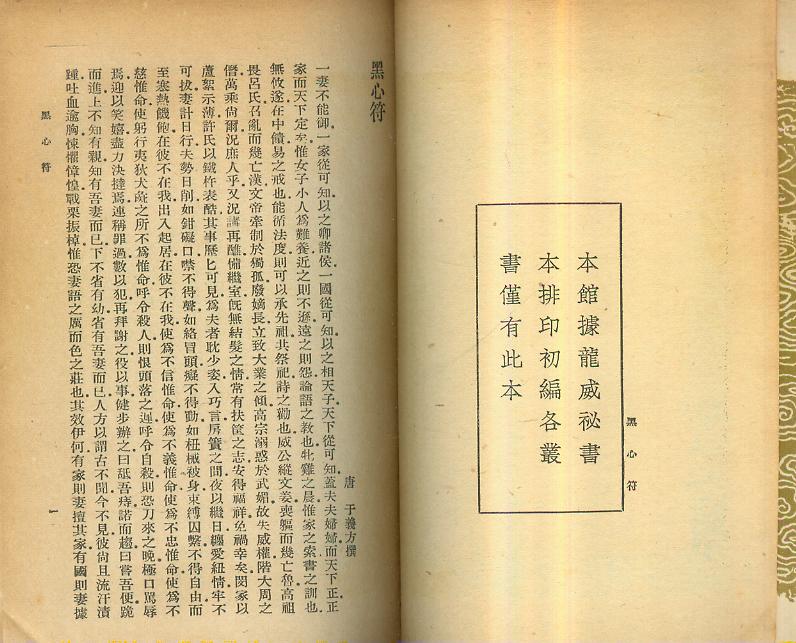 黑心符
本館據龍威祕書
本排印初編各叢
書僅有此本
黑心符
唐 于義方撰
一妻不能御一家從可知以之卿諸侯一國從可知以之相天子天下從可知蓋夫夫婦婦而天下正正
家而天下定矣惟女子小人爲難養近之則不遜遠之則怨論語之教也牝雞之晨惟家之索書之訓也
無攸遂在中饋易之戒也能循法度則可以承先祖共祭祀詩之勸也威公縱文姜喪軀而幾亡魯高祖
畏呂氏召亂而幾亡漢文帝牽制於獨孤廢嫡長立致大業之傾高宗溺惑於武媚故失威權階大周之
僭萬乘尙爾況庶人乎又況講再醮備繼室旣無結髮之情常有扶筐之志安得福祥免禍幸矣閔家以
蘆絮示薄許氏以鐵杵表酷其事歷匕可見爲夫者耽少姿入巧言房簀之間夜以繼日纏愛紐情牢不
可拔妻計日行夫勢日削如鉗礙口噤不得聲如絡冒頭癡不得動如杻械被身束縛囚繫不得自由而
至寒熱饑飽在彼不在我出入起居在彼不在我使爲不信惟命使爲不義惟命使爲不忠惟命使爲不
慈惟命使躬行夷狄犬彘之所不爲惟命呼令殺人則恨頭落之遲呼令自殺則恐刀來之晚極口罵辱
焉迎以笑嬉盡力決撻焉連稱罪過數以犯再拜謝之役以事健步辦之曰舐吾痔諾而趨曰嘗吾便跪
而進上不知有親知有吾妻而已下不省有幼省有吾妻而已人方以謂古不聞今不見彼尙且流汗漬
踵吐血逾胸悚懼慞惶戰栗振悼惟恐妻語之厲而色之莊也其效伊何有家則妻擅其家有國則妻據
黑心符
一